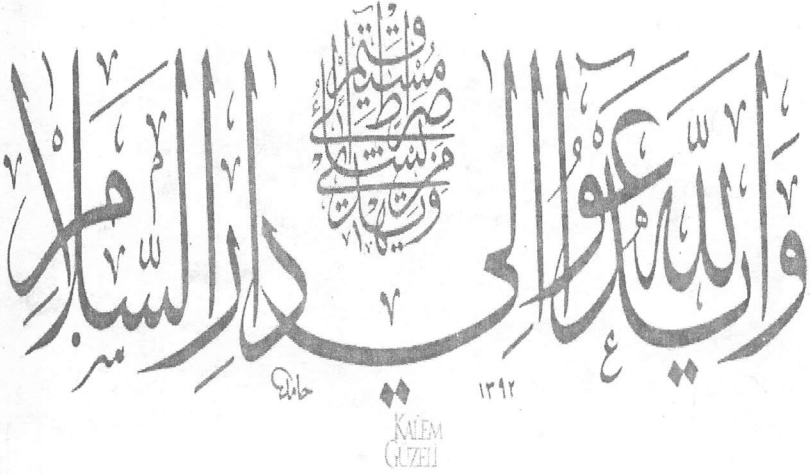 والله يدعوا إلى دار السلام
ويهدي من يشاء إلى صراط مستقيم
حامد
١٣٩٢
KALEM
GÜZELİ